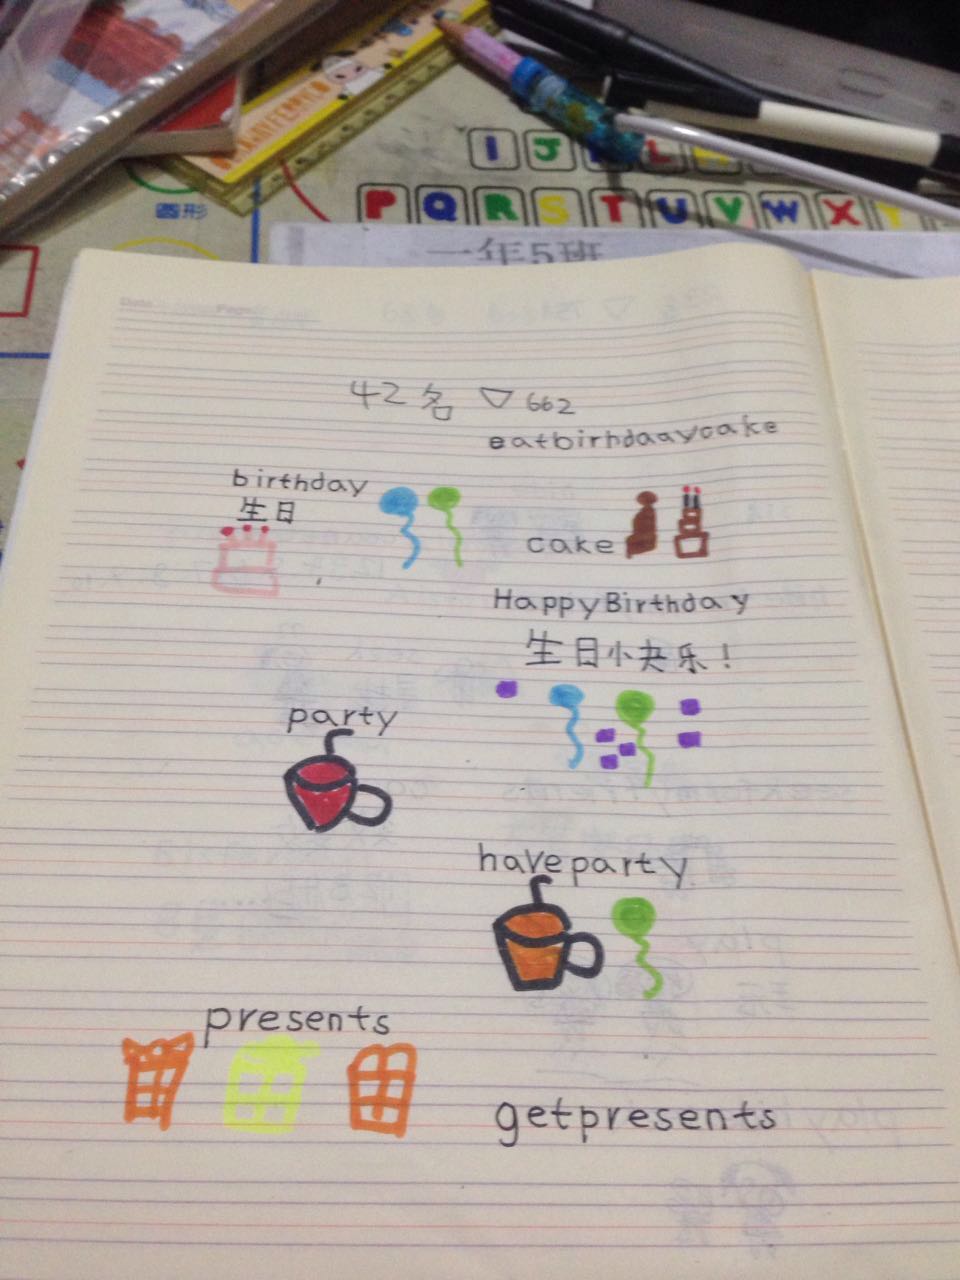 I J L
P Q R S T U V W X Y
圆形
一年5班
42名 ▽662
eatbirhdaaycake
birthday
生日
cake
HappyBirthday
生日小快乐！
party
haveparty
presents
getpresents